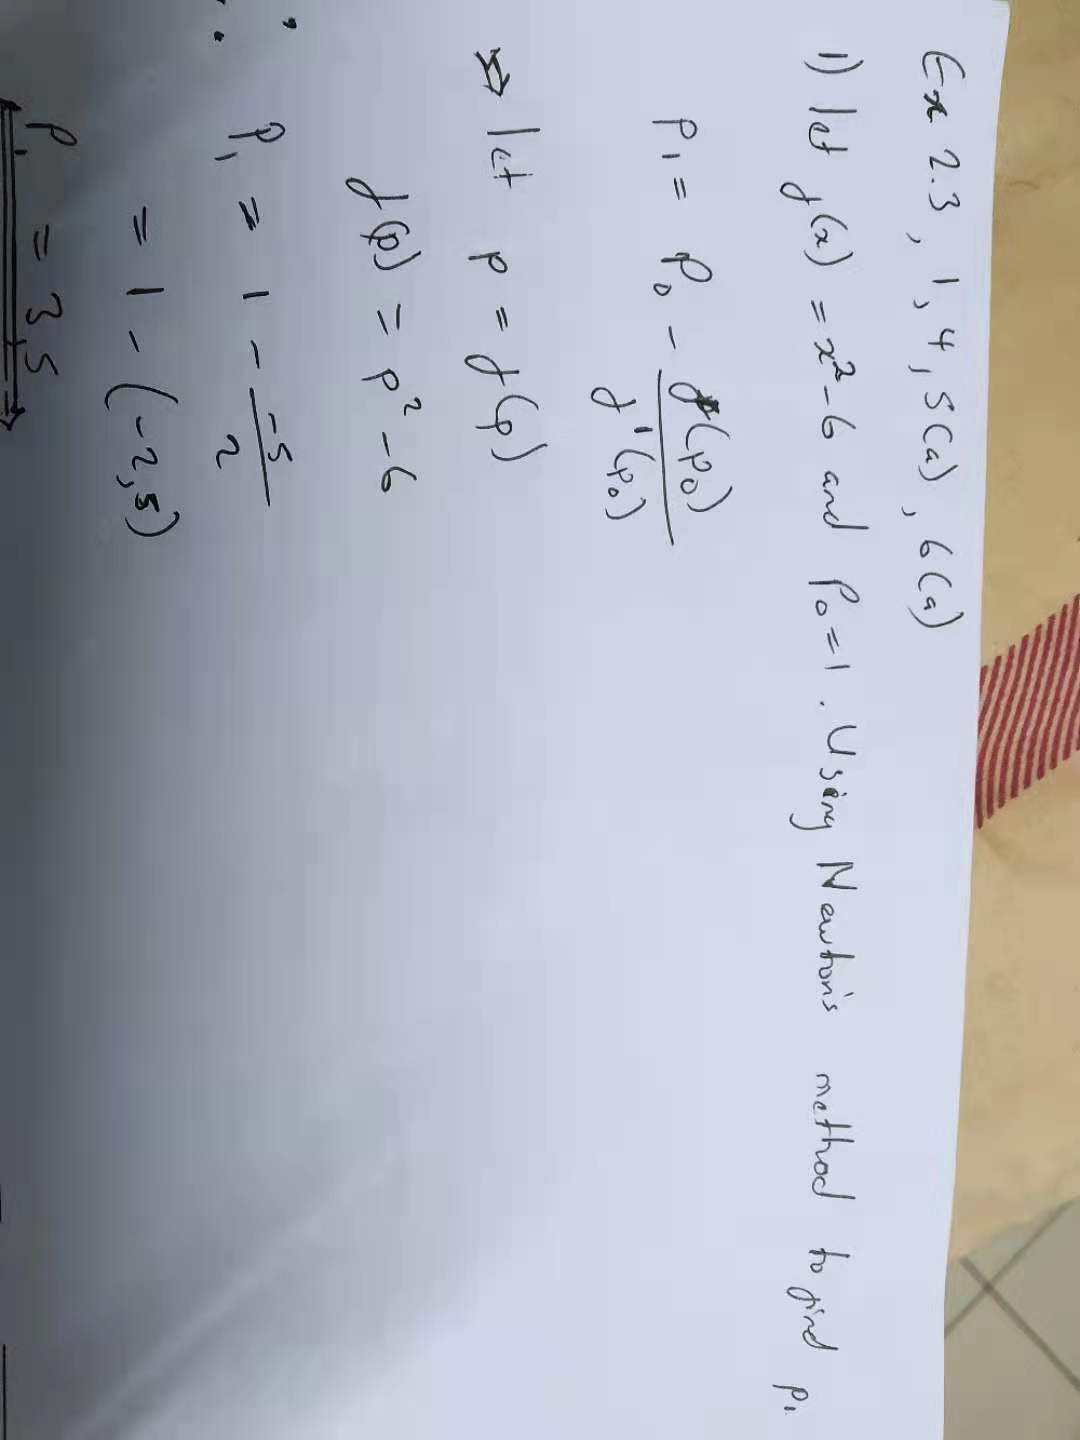 Ex 2.3, 1, 4, 5(a), 6(a)
1) let f(x) = x² - 6 and P₀ = 1. Using Newton's method to find P₁
P₁ = P₀ - f(P₀) / f'(P₀)
⇒ let p = f(p)
f(p) = p² - 6
P₁ = 1 - -5/2
= 1 - (-2,5)
P₁ = 3,5